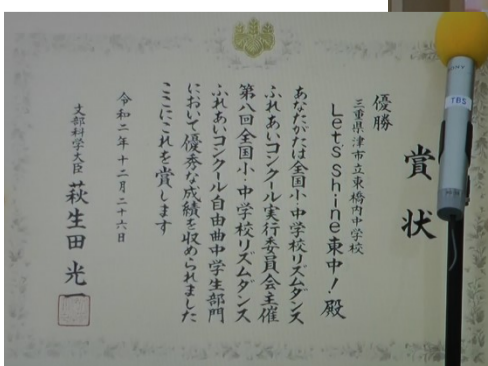 賞状
優勝
三重県津市立東橋内中学校
Let's Shine東中!殿
あなたがたは全国小・中学校リズムダンス
ふれあいコンクール実行委員会主催
第八回全国小・中学校リズムダンス
ふれあいコンクール自由曲中学生部門
において優秀な成績を収められました
ここにこれを賞します
令和二年十二月二十六日
文部科学大臣 萩生田光一
SONY
TBS